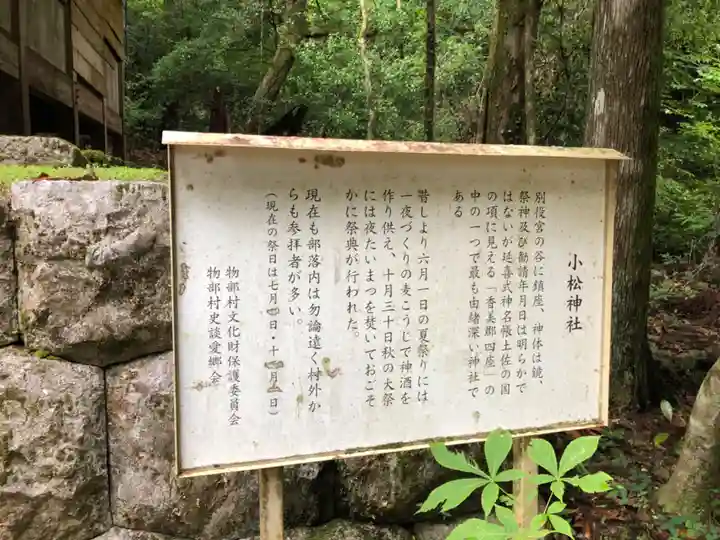 小松神社
別役宮の谷に鎮座、神体は鏡、
祭神及び勧請年月日は明らかで
はないが延喜式神名帳土佐の国
の項に見える「香美郡四座」の
中の一つで最も由緒深い神社で
ある
昔しより六月一日の夏祭りには
一夜づくりの麦こうじで神酒を
作り供え、十月三十日秋の大祭
には夜たいまつを焚いておごそ
かに祭典が行われた。
現在も部落内は勿論遠く村外か
らも参拝者が多い。
(現在の祭日は七月 日・十 月 日)
物部村文化財保護委員会
物部村史談愛郷会